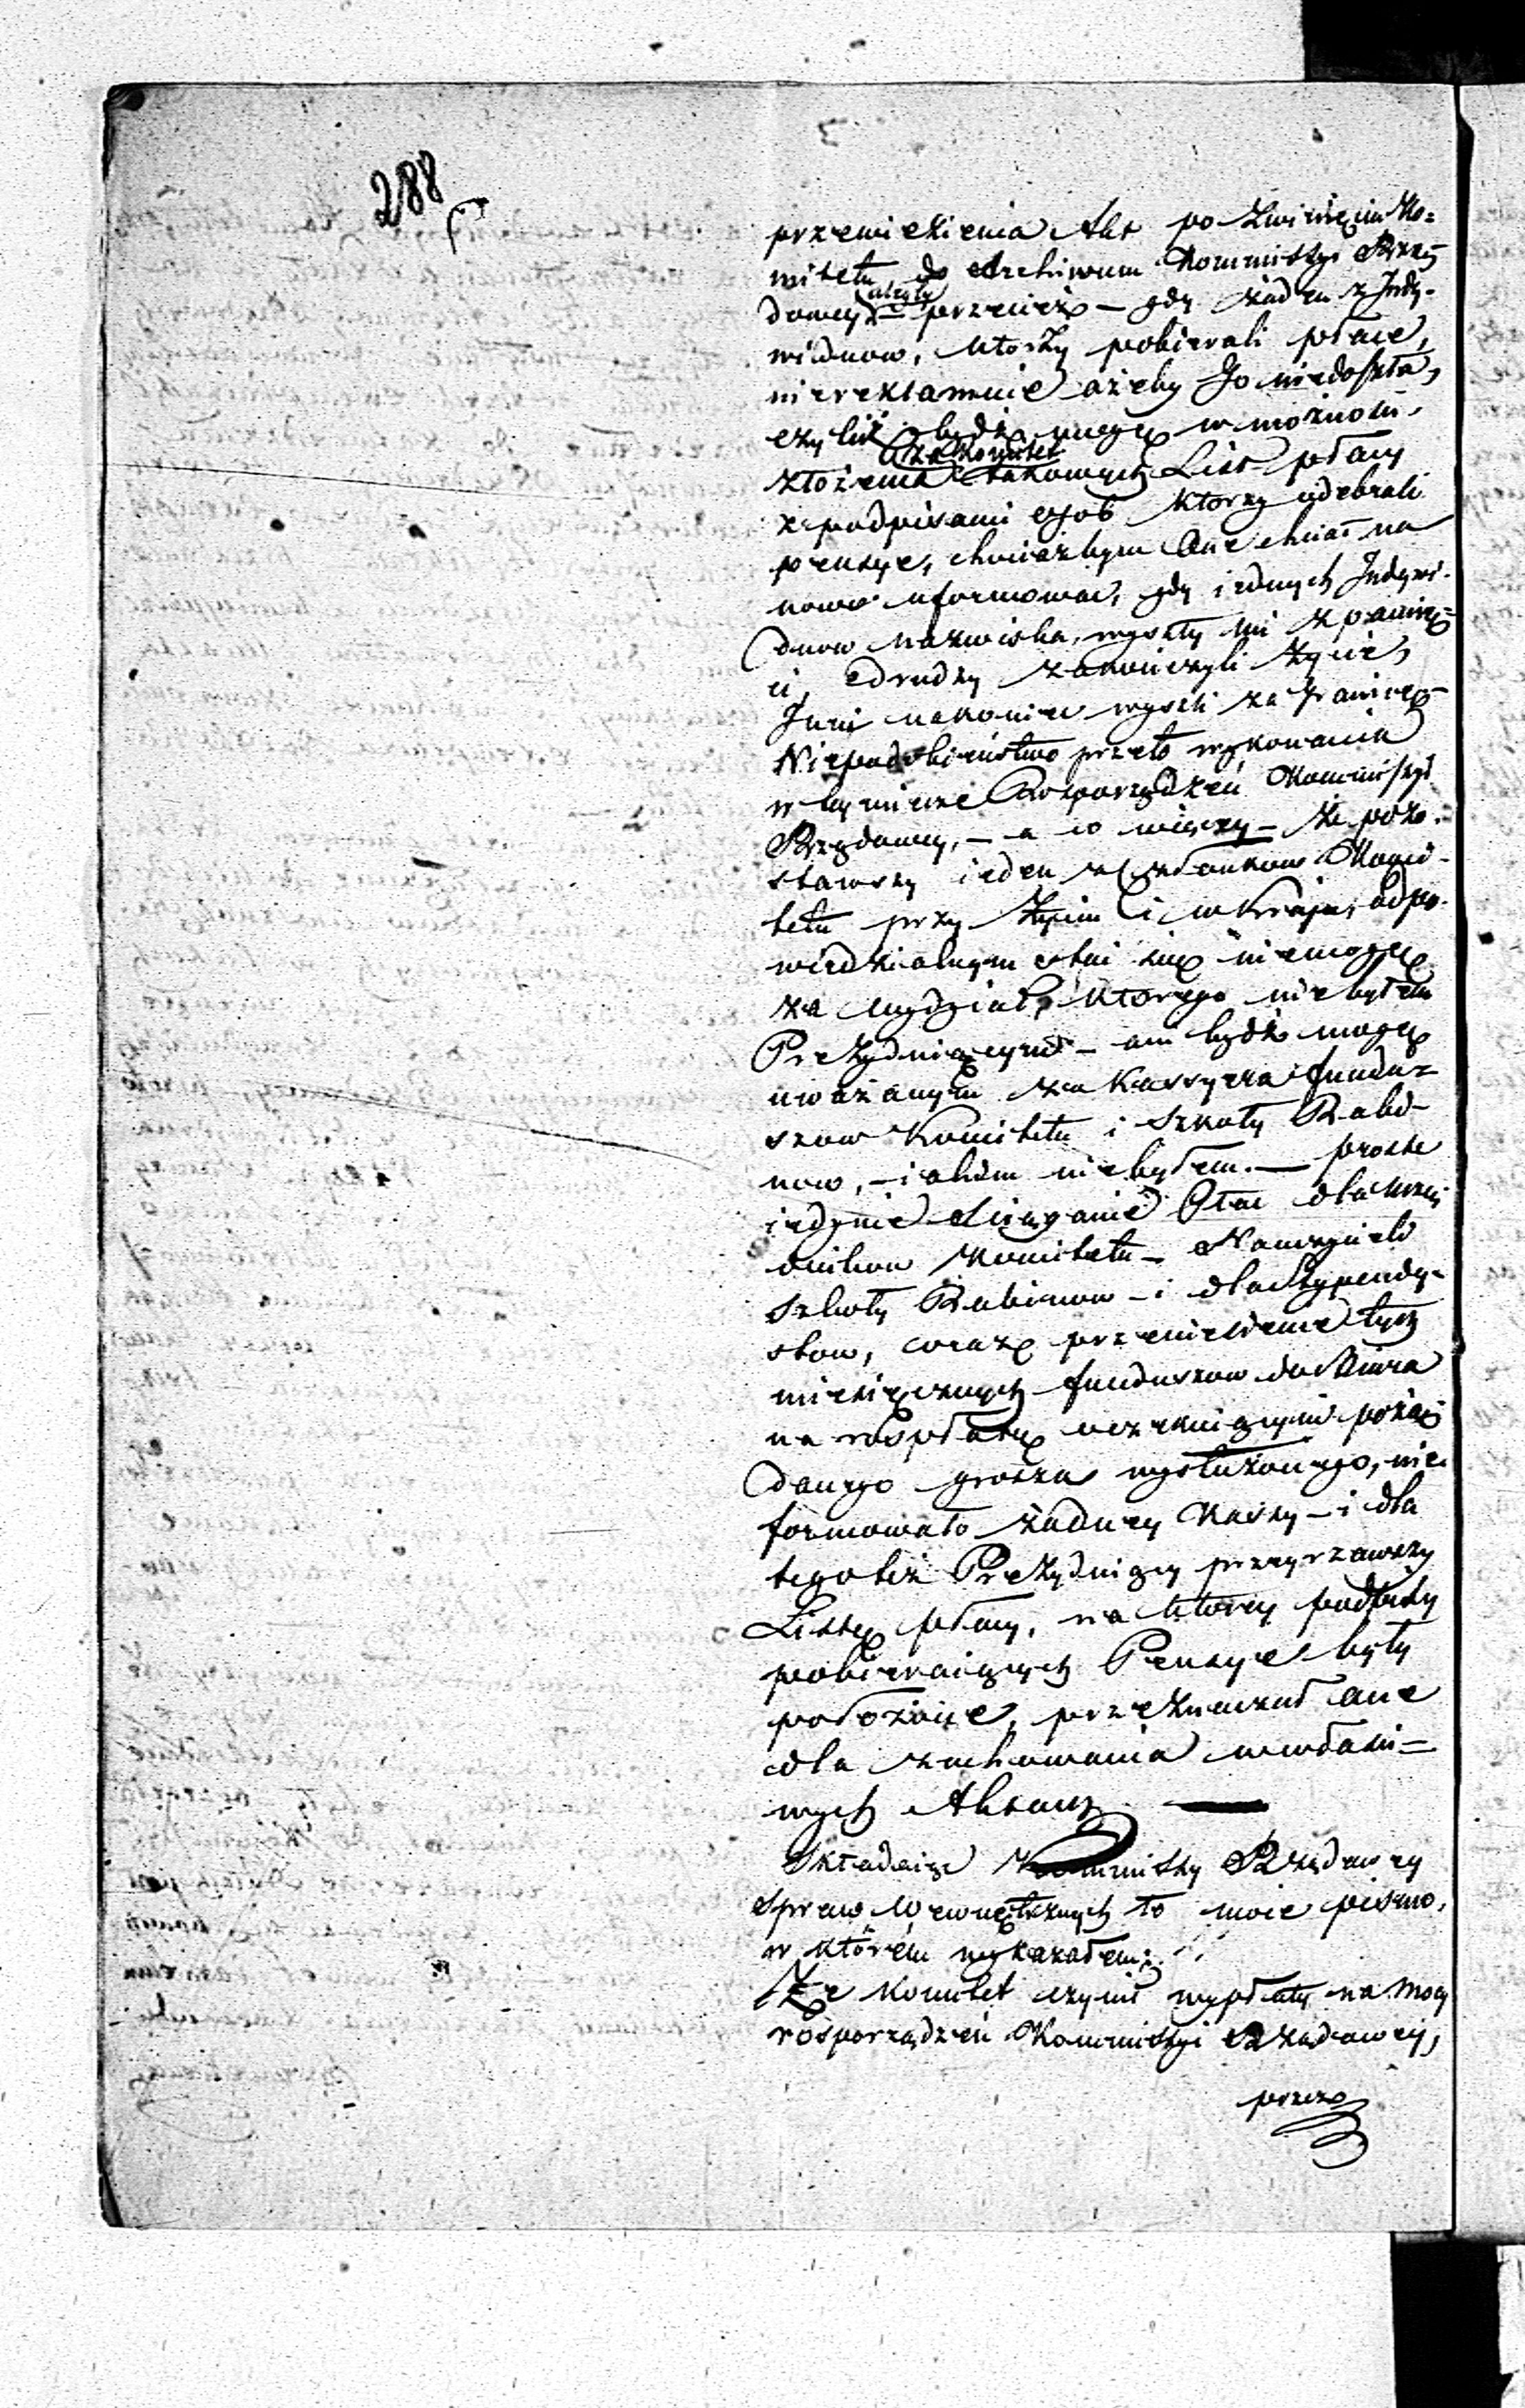 288
przeniesienia Akt po zwinięciu Ko=
mitetu do Archiwum Kommissyi Rzą=
dowey uległy przecież – gdy żaden z Indy-
widuow, ktorzy pobierali płace,
niereklamuie ażeby Jo niedoszła,
czyliż bydź mogę w możności
złożenia za Komitet takowych List płacy
z podpisami osob ktorzy odebrali
pensye, chociażbym one chciał na
nowo uformować, gdy iednych Indywi-
duow nazwiska, wyszły mi z pamię=
ci, drudzy zakończyli życie,
Inni nakoniec wyszli za granicę –
Niepodobieństwo przeto wykonania
w tey mierze Rozporządzeń Kommissyi
Rządowey, – a co więcey – że pozo-
stawszy ieden z Członkow Komi-
tetu przy życiu i w Kraju, odpo-
wiedzialnym stać się niemogę
za wydział, ktorego niebyłem
Prezyduiącym – ani bydź mogę
uważanym za Kassyera fundu=
szow Komitetu i Szkoły Rabi-
now, – iakim niebyłem. — proste
iedynie ściąganie Płac dla Urzę
dnikow Komitetu – Nauczycieli
Szkoły Rabinow – i dla Stypendy-
stow, oraz przeniesienie tych
miesięcznych funduszow do Biura
na rospłatę oczekuiącym pożą
danego grosza wysłużonego, nie
formowało żadney Kassy – i dla
tego też Prezyduiący przeyrzawszy
Listę płacy, na ktorey podpisy
pobieraiących Pensye były
położone, przeznaczał one
dla zachowania w właści=
wych Aktach. —
Składaiąc Kommissyi Rządowey
Spraw Wewnętrznych to moie pismo,
w którém wykazałem:
Że Komitet czynił wypłaty na mocy
rosporządzeń Kommissyi Rządowey,
przez